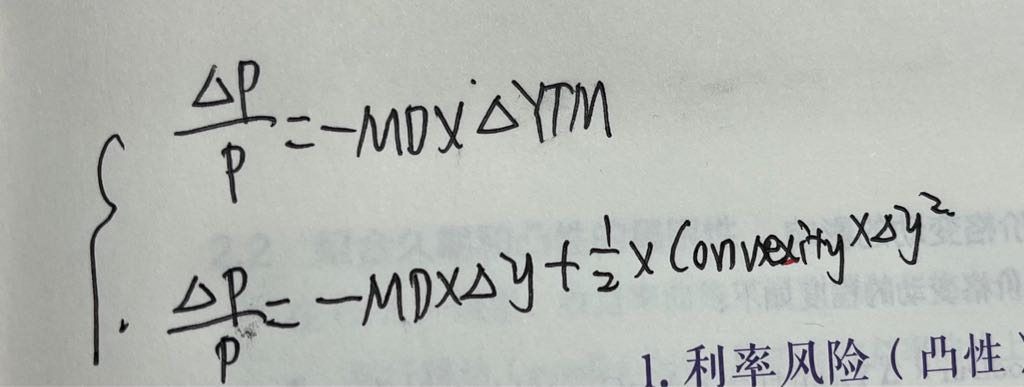 ΔP/P = -MD×ΔYTM
ΔP/P = -MD×Δy + 1/2 × Convexity × Δy²
1. 利率风险(凸性)